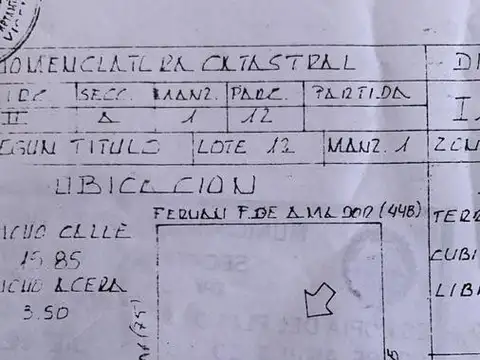 NOMENCLATURA CATASTRAL
CIRC SECC. MANZ. PARC. PARTIDA
II A 1 12
SEGUN TITULO LOTE 12 MANZ. 1 ZON
UBICACION
FERNAN F. DE AMADOR (448)
ANCHO CALLE
15.85
ANCHO ACERA
3.50
TERR
CUBI
LIB